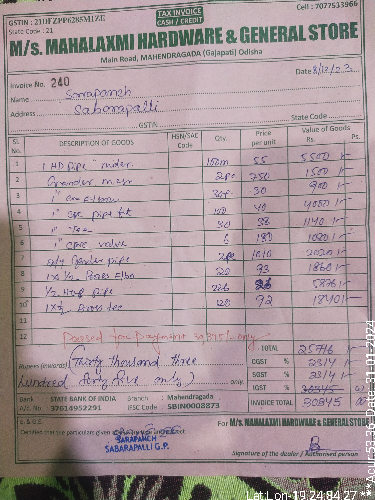 GSTIN : 21DFZPP6285M1ZE
State Code : 21
TAX INVOICE
CASH / CREDIT
Cell : 7077533966
M/s. MAHALAXMI HARDWARE & GENERAL STORE
Main Road, MAHENDRAGADA (Gajapati) Odisha
Invoice No. 240
Date 8/12/23
Name Sarapanch
Address Sabarapalli
GSTIN
State Code
Sl. No. DESCRIPTION OF GOODS HSN/SAC Code Qty. Price per unit Value of Goods Rs. Ps.
1 HD pipe 100m 55 5500
2 2pc 750 1500
3 1" 30pc 30 900
4 1" cpc pipe fit 100 40 4000
5 1" Tee 30 38 1140
6 1" cpvc valve 6 180
7 pipe 2pc 1010 2020
8 1x1/2 Brass Elbo 20 93 1860
9 1/2 pipe 226 26 5876
10 1x1/2 Brass tee 20 92 1840
11
12
Passed for payment
TOTAL 25716
Rupees (Inwords) (Thirty thousand three
CGST % 2314
SGST % 2314
hundred forty five only) only.
IGST %
INVOICE TOTAL 30345 00
Bank : STATE BANK OF INDIA Branch : Mahendragada
A/c. No. 37614952291 IFSC Code : SBIN0008873
E. & O.E.
Certified that the particulars given
For M/s. MAHALAXMI HARDWARE & GENERAL STORE
SARAPANCH
SABARAPALLI G.P.
Signature of the dealer / Authorised person
Lat:Lon-19.24:84.27
Acu-53.3: Date-31-01-2024